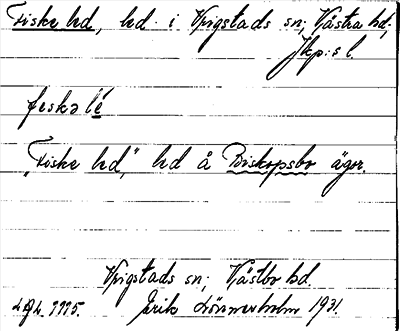 Fiske led, led i Vrigstads sn; Västra hd;
Jkp:s l.
feskə lé
"Fiske led", led å Biskopsbo ägor.
Vrigstads sn; Västbo hd.
Erik Lönnerholm 1931.